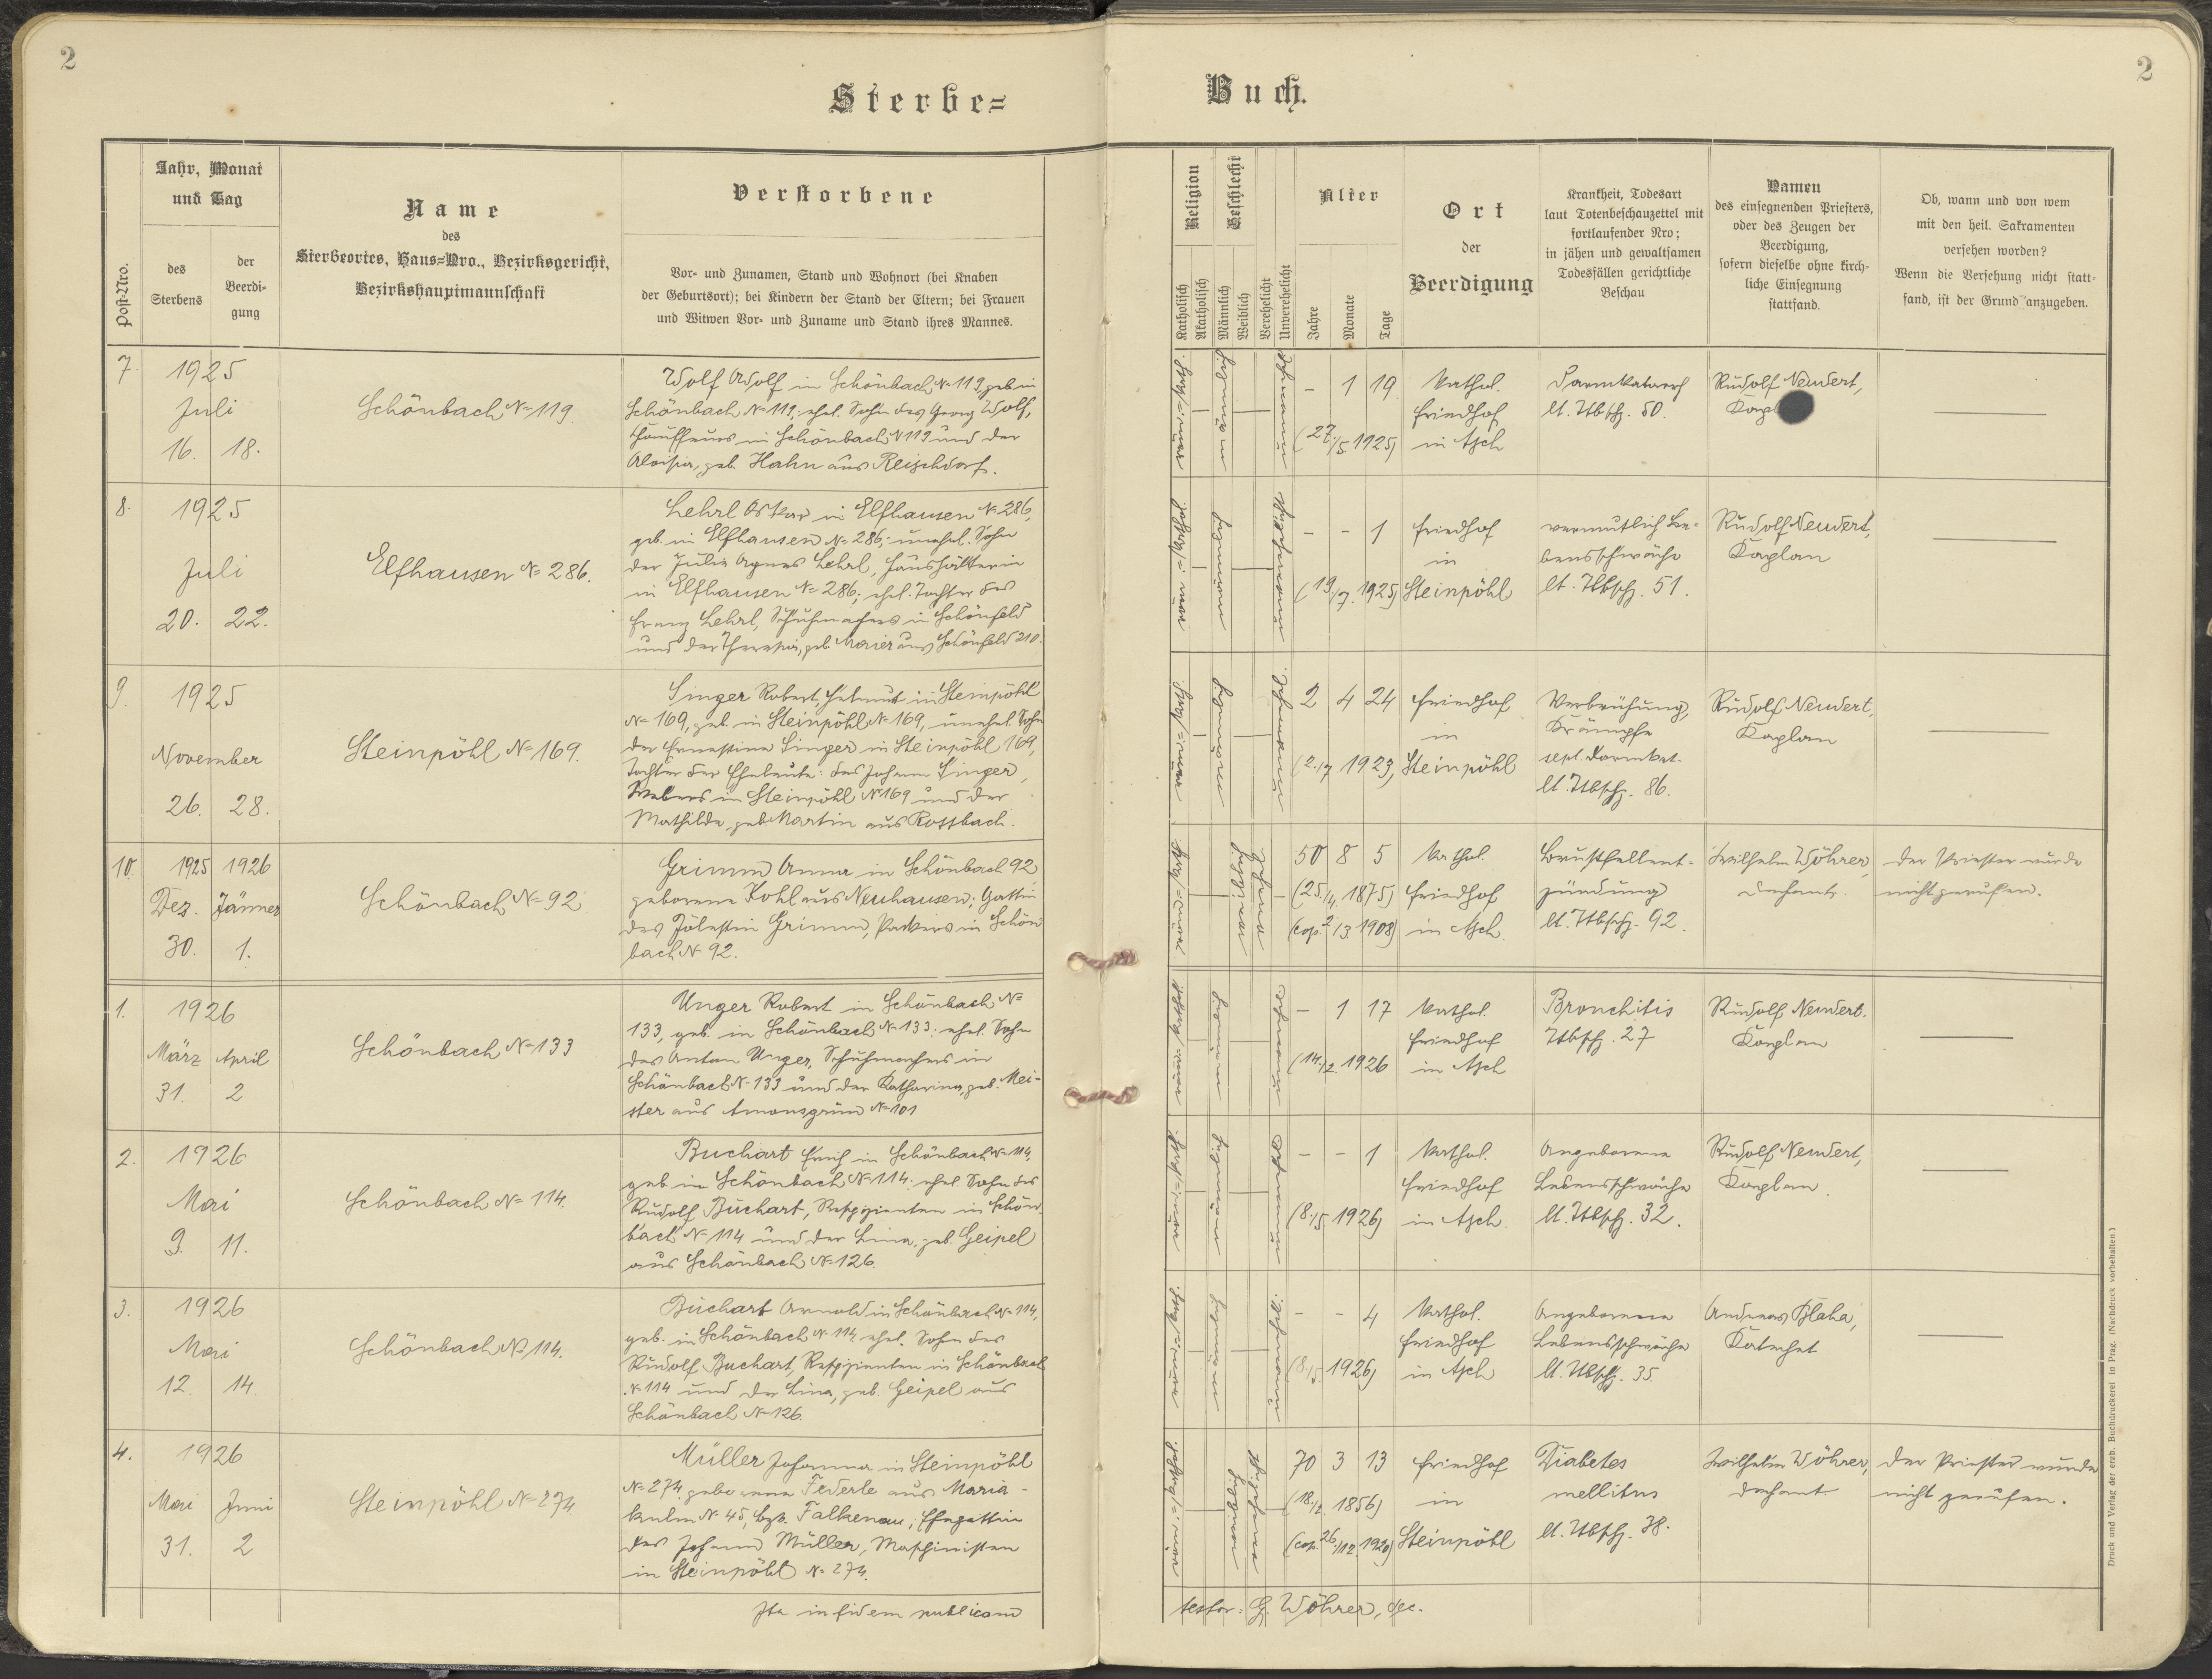 2
Sterbe=
Post-Nro.
Jahr, Monat
und Tag
des
Sterbens
der
Beerdi-
gung
Name
des
Sterbeortes, Haus=Nro., Bezirksgericht,
Bezirkshauptmannschaft
Verstorbene
Vor- und Zunamen, Stand und Wohnort (bei Knaben
der Geburtsort); bei Kindern der Stand der Eltern; bei Frauen
und Witwen Vor- und Zuname und Stand ihres Mannes.
7.
1925
Juli
16. 18.
Schönbach No 119.
Wolf Adolf in Schönbach No 119, geb. in
Schönbach No 119; ehel. Sohn des Georg Wolf,
Chauffeurs in Schönbach N 119 und der
Aloisia, geb. Hahn aus Reischdorf.
8.
1925
Juli
20. 22.
Elfhausen No 286.
Lehrl Oskar in Elfhausen No 286,
geb. in Elfhausen No 286; unehel. Sohn
der Julie Agnes Lehrl, Haushälterin
in Elfhausen No 286; ehel. Tochter des
Franz Lehrl, Schuhmachers in Schönfeld
und der Theresia, geb. Maier aus Schönfeld 210.
9.
1925
November
26. 28.
Steinpöhl No 169.
Singer Robert Helmut in Steinpöhl
No 169, geb. in Steinpöhl No 169, unehel. Sohn
der Ernestine Singer in Steinpöhl 169,
Tochter der Eheleute: des Johann Singer,
Webers in Steinpöhl No 169 und der
Mathilde, geb. Martin aus Rossbach.
10.
1925 1926
Dez. Jänner
30. 1.
Schönbach No 92
Grimm Anna in Schönbach 92,
geborene Kohl aus Neuhausen; Gattin
des Zölestin Grimm, Packers in Schön
bach No 92.
1.
1926
März April
31. 2
Schönbach No 133
Unger Robert in Schönbach No
133, geb. in Schönbach No 133. ehel. Sohn
des Anton Unger, Schuhmachers in
Schönbach No 133 und der Katharina, geb. Mei-
ster aus Amonsgrün No 101
2.
1926
Mai
9. 11.
Schönbach No 114.
Buchart Erich in Schönbach No 114,
geb. in Schönbach No 114. ehel. Sohn des
Rudolf Buchart, Respizienten in Schön
bach No 114 und der Lina, geb. Geipel
aus Schönbach No 126.
3.
1926
Mai
12. 14.
Schönbach No 114.
Buchart Arnold in Schönbach No 114,
geb. in Schönbach No 114, ehel. Sohn des
Rudolf Buchart, Respizienten in Schönbach
No 114 und der Lina, geb. Geipel aus
Schönbach No 126.
4.
1926
Mai Juni
31. 2
Steinpöhl No 274
Müller Johanna in Steinpöhl
No 274, geborene Federle aus Maria-
kulm No 45, Bzk. Falkenau; Ehegattin
des Johann Müller, Maschinisten
in Steinpöhl No 274.
Ita in fidem publicam
2
Buch.
Religion
Katholisch
Akatholisch
Geschlecht
Männlich
Weiblich
Verehelicht
Unverehelicht
Alter
Jahre
Monate
Tage
Ort
der
Beerdigung
Krankheit, Todesart
laut Totenbeschauzettel mit
fortlaufender Nro;
in jähen und gewaltsamen
Todesfällen gerichtliche
Beschau
Namen
des einsegnenden Priesters,
oder des Zeugen der
Beerdigung,
sofern dieselbe ohne kirch-
liche Einsegnung
stattfand.
Ob, wann und von wem
mit den heil. Sakramenten
versehen worden?
Wenn die Versehung nicht statt-
fand, ist der Grund anzugeben.
– 1 19
(27./5 1925)
Kathol.
Friedhof
in Asch
Darmkatarrh
lt. Ttbschz. 50.
Rudolf Neudert,
– – 1
(19./7. 1925)
Friedhof
in
Steinpöhl
vermutlich Le-
bensschwäche
lt. Ttbschz. 51.
Rudolf Neudert,
Kaplan
2 4 24
(2./7 1923)
Friedhof
in
Steinpöhl
Verbrühung,
Krämpfe
lt. Ttbschz. 86.
Rudolf Neudert,
Kaplan
50 8 5
(25./4. 1875)
(cop. 2/3. 1908)
Kathol.
Friedhof
in Asch.
Brustfellent-
zündung
lt. Ttbschz. 92.
Wilhelm Wöhrer,
Dechant.
Der Priester wurde
nicht gerufen.
– 1 17
(14./2. 1926
Kathol.
Friedhof
in Asch
Bronchitis
Ttbschz. 27
Rudolf Neudert.
Kaplan
– – 1
(8./5. 1926)
Kathol.
Friedhof
in Asch.
Angeborene
Lebensschwäche
lt. Ttbschz. 32.
Rudolf Neudert,
Kaplan.
– – 4
(8./5. 1926)
Kathol.
Friedhof
in Asch
Angeborene
Lebensschwäche
lt. Ttbschz. 35.
Andreas Blaha,
Katechet
70 3 13
(18./2. 1856)
(cop. 26./12. 1920)
Friedhof
in
Steinpöhl
Diabetes
mellitus
lt. Ttbschz. 38.
Wilhelm Wöhrer,
Dechant
Der Priester wurde
nicht gerufen.
testor: G. Wöhrer, dec.
Druck und Verlag der erzb. Buchdruckerei in Prag. (Nachdruck vorbehalten.)